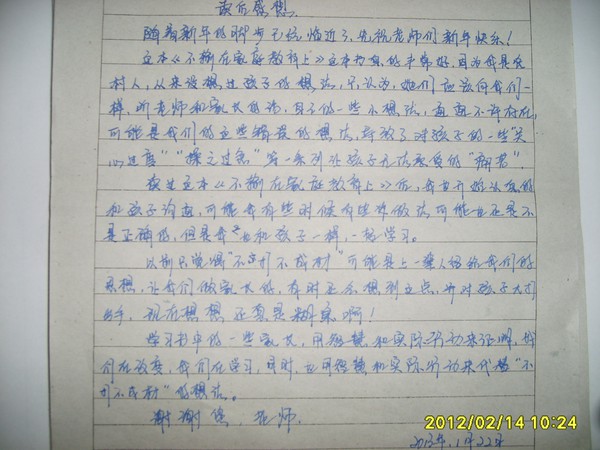 读后感想.
随着新年的脚步已经临近了,先祝老师们新年快乐!
这本《不输在家庭教育上》这本书真的非常好,因为我是农
村人,从来没想过孩子的想法,只认为,她们应该向我们一
样,听老师和家长的话,自己的一些小想法,直直不许存在,
可能是我们的这些错误的想法,导致了对孩子的一些“关
心过度”“操之过急”等一系列让孩子无法承受的“病君”.
读过这本《不输在家庭教育上》后,我也开始认真的
和孩子沟通,可能我有些时候有些做法可能也还是不
是正确的,但是我也和孩子一样,一起学习.
以前只觉得“不打不成材”可能是上一辈人给我们的
思想,让我们做家长的,有时还会想到这点,并对孩子大打
出手,现在想想还真是糊涂啊!
学习书中的一些家长,用智慧和实际行动来证明,我
们在改变,我们在学习,同时,也用智慧和实际行动来代替“不
打不成材”的想法.
谢谢您,老师.
2012/02/14 10:24
2012年.1月22日